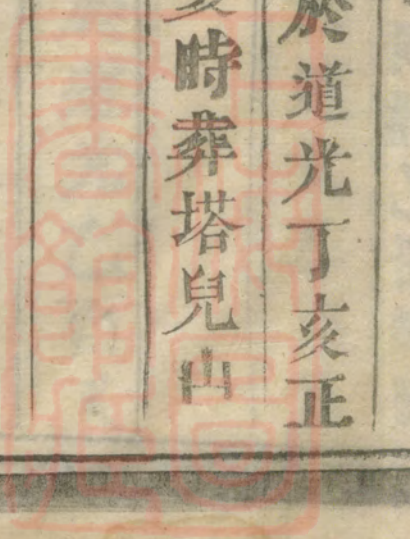 於道光丁亥正
時葬塔兒山